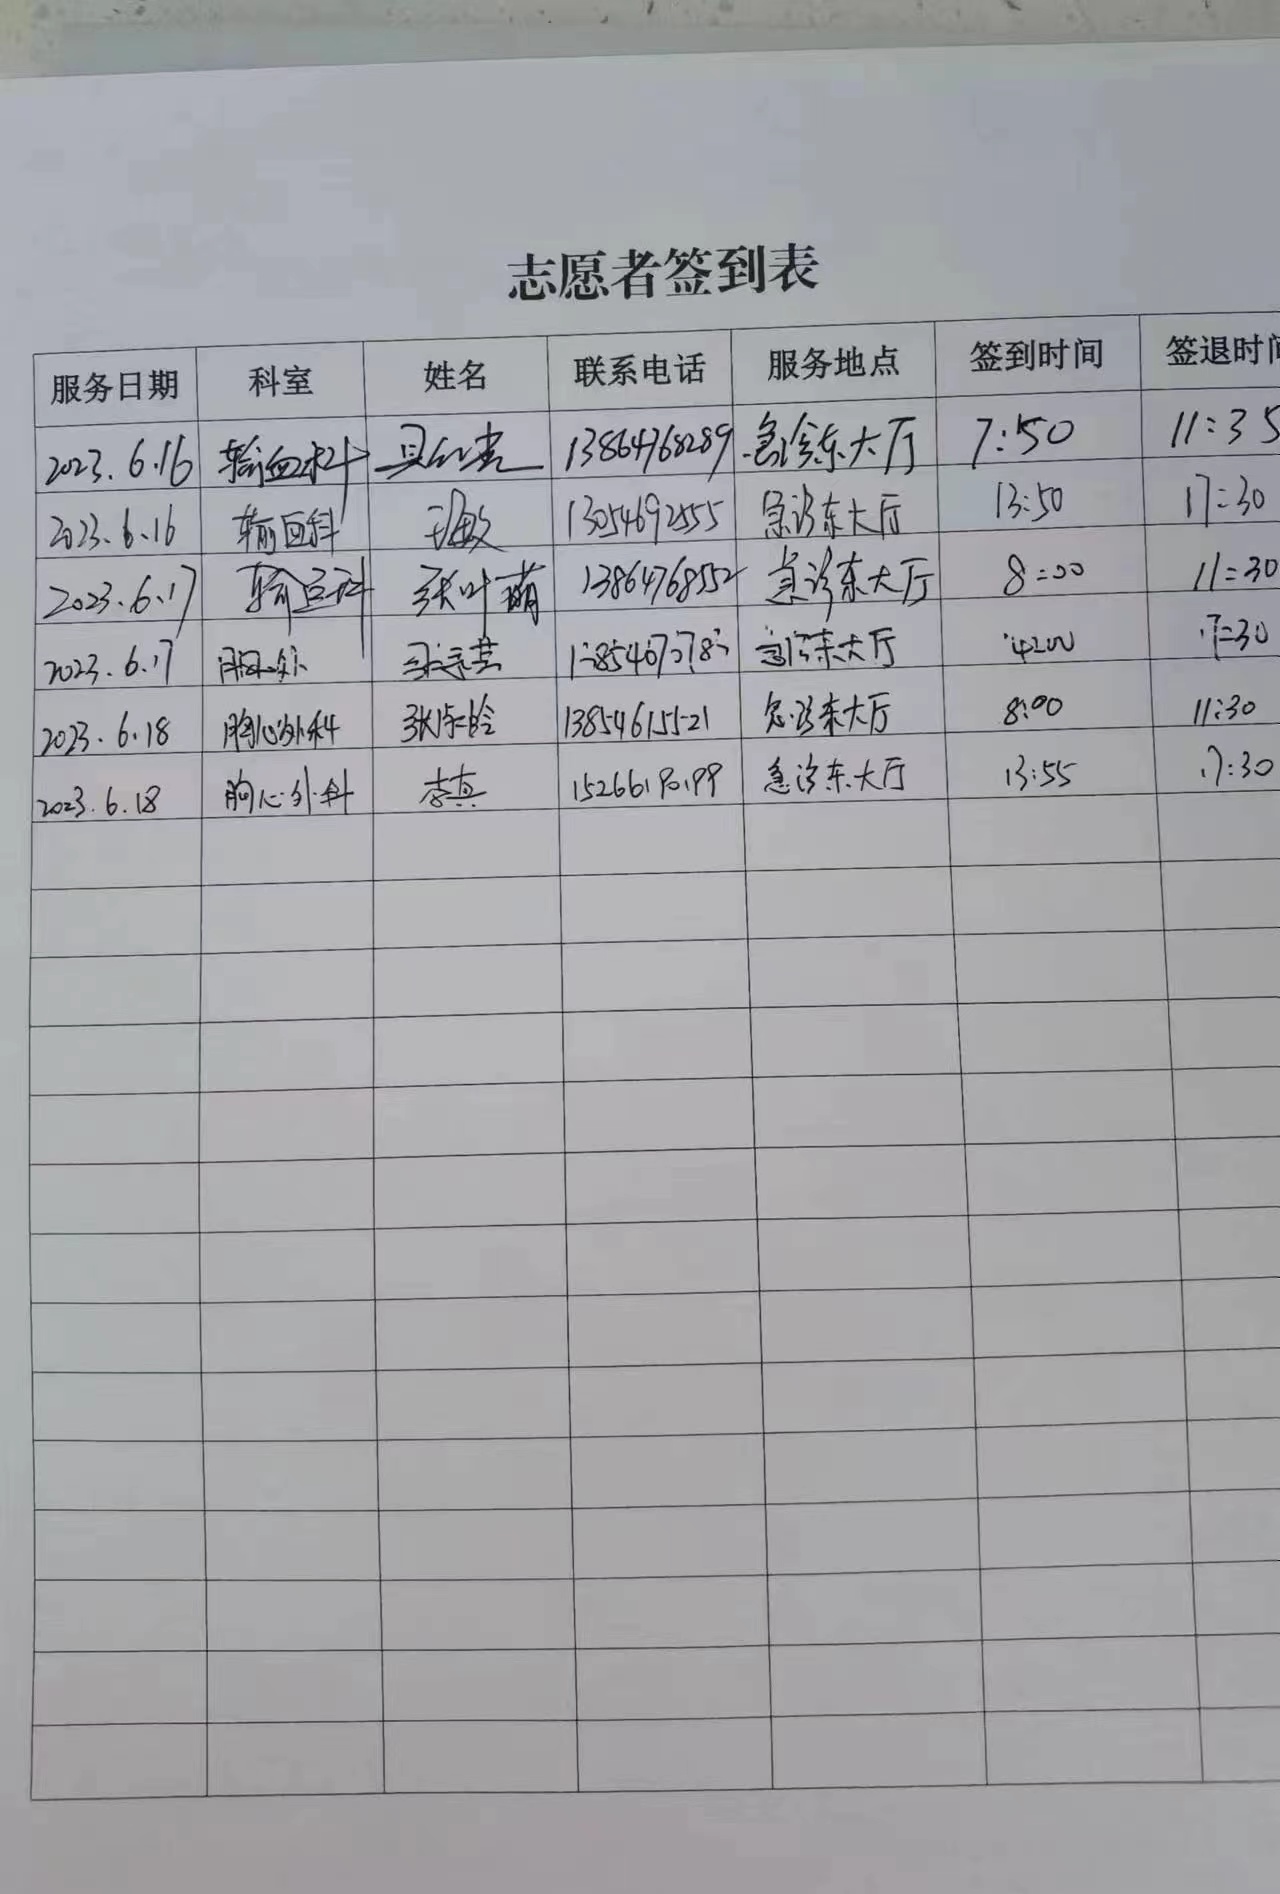 志愿者签到表
服务日期 科室 姓名 联系电话 服务地点 签到时间 签退时
2023.6.16 输血科 13864768289 急诊东大厅 7:50 11:35
2023.6.16 输血科 敏 13054692555 急诊东大厅 13:50 17:30
2023.6.17 输血科 张叶萌 13864768552 急诊东大厅 8:00 11:30
2023.6.17 急诊东大厅 17:30
2023.6.18 胸心外科 张 13854615521 急诊东大厅 8:00 11:30
2023.6.18 胸心外科 李真 15266190199 急诊东大厅 13:55 17:30